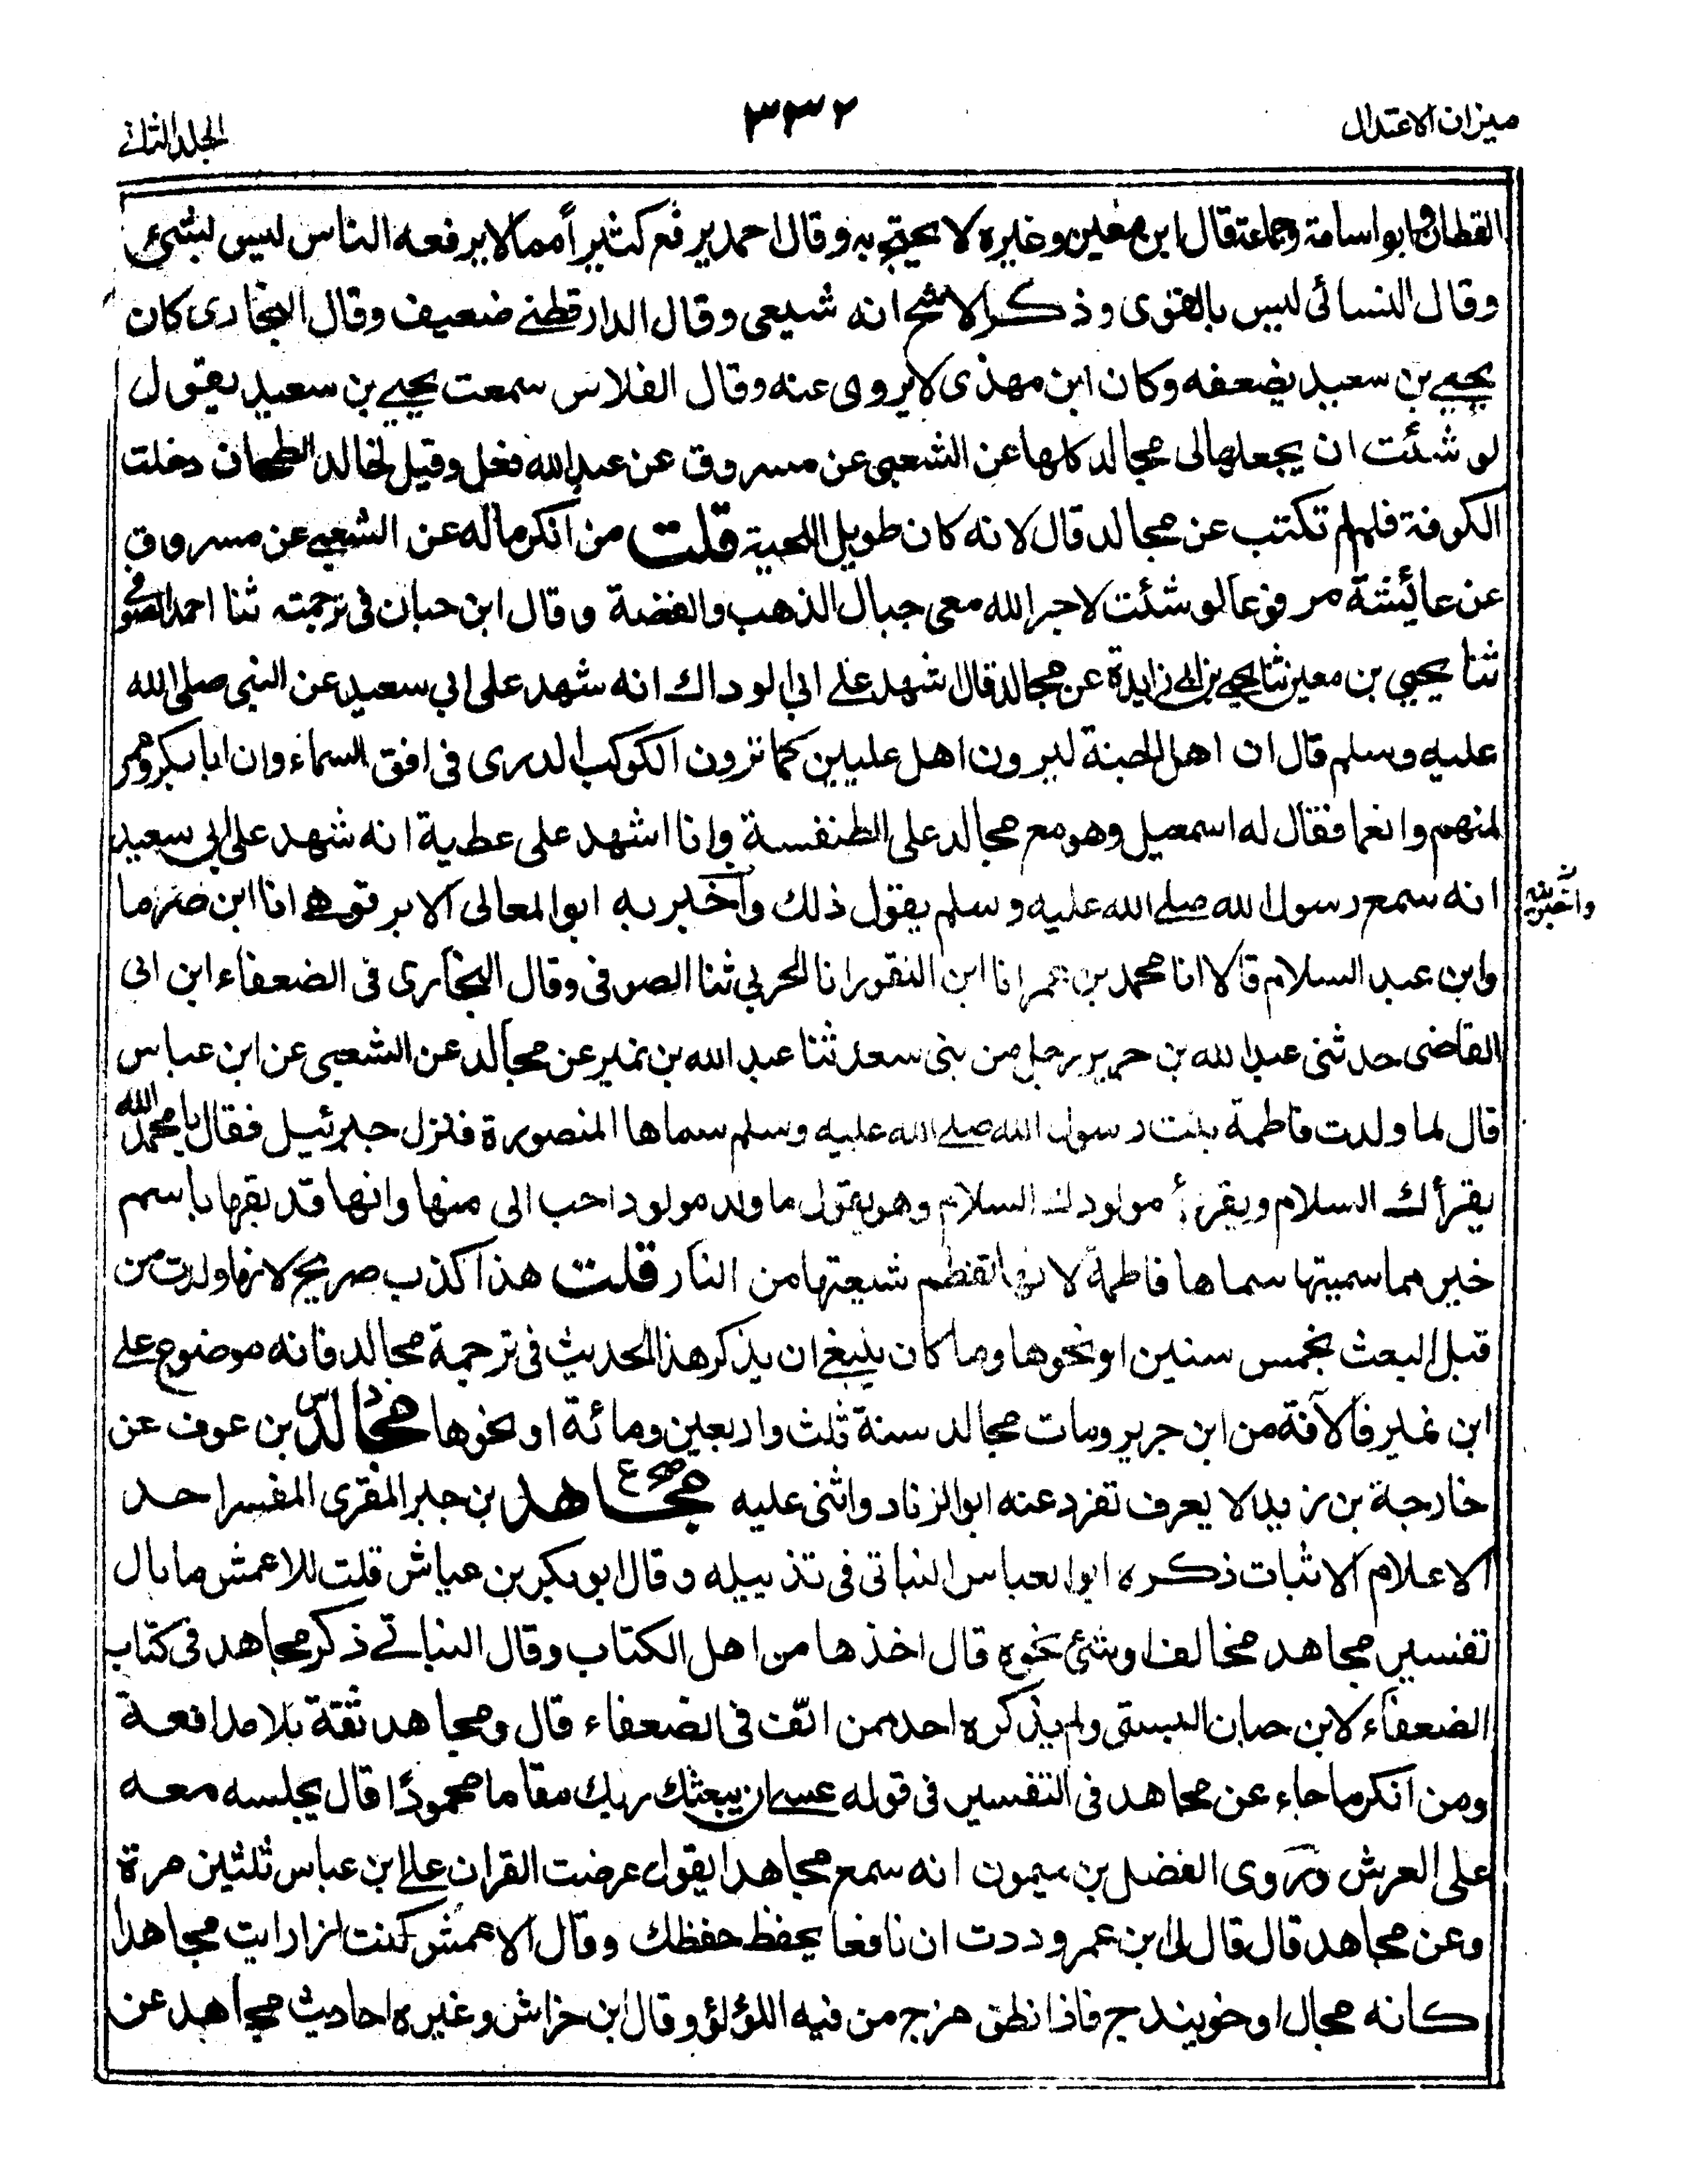 ميزان الاعتدال
٣٣٢
الجلد الثانى
القطان وابو اسامة وجماعة قال ابن معين وغيره لا يحتج به وقال احمد يرفع كثيرا مما لا يرفعه الناس ليس بشئ
وقال النسائى ليس بالقوى وذكر الاشج انه شيعى وقال الدارقطنے ضعيف وقال البخارى كان
يحيے بن سعيد يضعفه وكان ابن مهدى لا يروى عنه وقال الفلاس سمعت يحيے بن سعيد يقول
لو شئت ان يجعلها لى مجالد كلها عن الشعبى عن مسروق عن عبد الله فعل وقيل لخالد الطحان دخلت
الكوفة فلم لم تكتب عن مجالد قال لانه كان طويل اللحية قلت من انكر ما له عن الشعبے عن مسروق
عن عائيشة مرفوعا لو شئت لاجر الله معى جبال الذهب والفضة وقال ابن حبان فى ترجمته ثنا احمد الصوفى
ثنا يحيى بن معين ثنا يحيے بن ابى زايدة عن مجالد قال شهد علے ابى الوداك انه شهد على ابى سعيد عن النبى صلى الله
عليه وسلم قال ان اهل الجنة ليرون اهل عليين كما ترون الكوكب الدرى فى افق السماء وان ابا بكر وعمر
لمنهم وانعما فقال له اسمعيل وهو مع مجالد على الطنفسة وانا اشهد على عطية انه شهد على ابى سعيد
انه سمع رسول الله صلے الله عليه وسلم يقول ذلك وآخبر به ابو المعالى الابرقوهے انا ابن صرما
وآخبرنيه
وابن عبد السلام قالا انا محمد بن عمر انا ابن النقور انا الحربى ثنا الصوفى وقال البخارى فى الضعفاء ابن ابى
القاضى حدثنى عبد الله بن جرير رجل من بنى سعد ثنا عبد الله بن نمير عن مجالد عن الشعبى عن ابن عباس
قال لما ولدت فاطمة بنت رسول الله صلے الله عليه وسلم سماها المنصورة فنزل جبرئيل فقال يا محمد الله
يقرأك السلام ويقرئ مولودك السلام وهو يقول ما ولد مولود احب الى منها وانها قد لقبها باسم
خير مما سميتها سماها فاطمة لانها تفطم شيعتها من النار قلت هذا كذب صريح لانها ولدت من
قبل البعث بخمس سنين او نحوها وما كان ينبغے ان يذكر هذا الحديث فى ترجمة مجالد فانه موضوع علے
ابن نمير فالآفة من ابن جرير ومات مجالد سنة ثلث واربعين ومائة او نحوها مجالد س بن عوف عن
خارجة بن زيد لا يعرف تفرد عنه ابو الزناد واثنى عليه مجاهد ع بن جبر المقرى المفسر احد
الاعلام الاثبات ذكره ابو العباس النباتى فى تذييله وقال ابو بكر بن عياش قلت للاعمش ما بال
تفسير مجاهد مخالف او شئ نحوه قال اخذها من اهل الكتاب وقال النباتے ذكر مجاهد فى كتاب
الضعفآء لابن حبان البستى ولم يذكره احد ممن الّف فى الضعفاء قال ومجاهد ثقة بلا مدافعة
ومن انكر ما جاء عن مجاهد فى التفسير فى قوله عسے ان يبعثك ربك مقاما محمودًا قال يجلسه معه
على العرش وروى الفضل بن ميمون انه سمع مجاهدا يقول عرضت القران علے ابن عباس ثلثين مرة
وعن مجاهد قال قال لى ابن عمر وددت ان نافعا يحفظ حفظك وقال الاعمش كنت اذا رايت مجاهدا
كانه مجال او خربندج فاذا نطق خرج من فيه اللؤلؤ وقال ابن خراش وغيره احاديث مجاهد عن